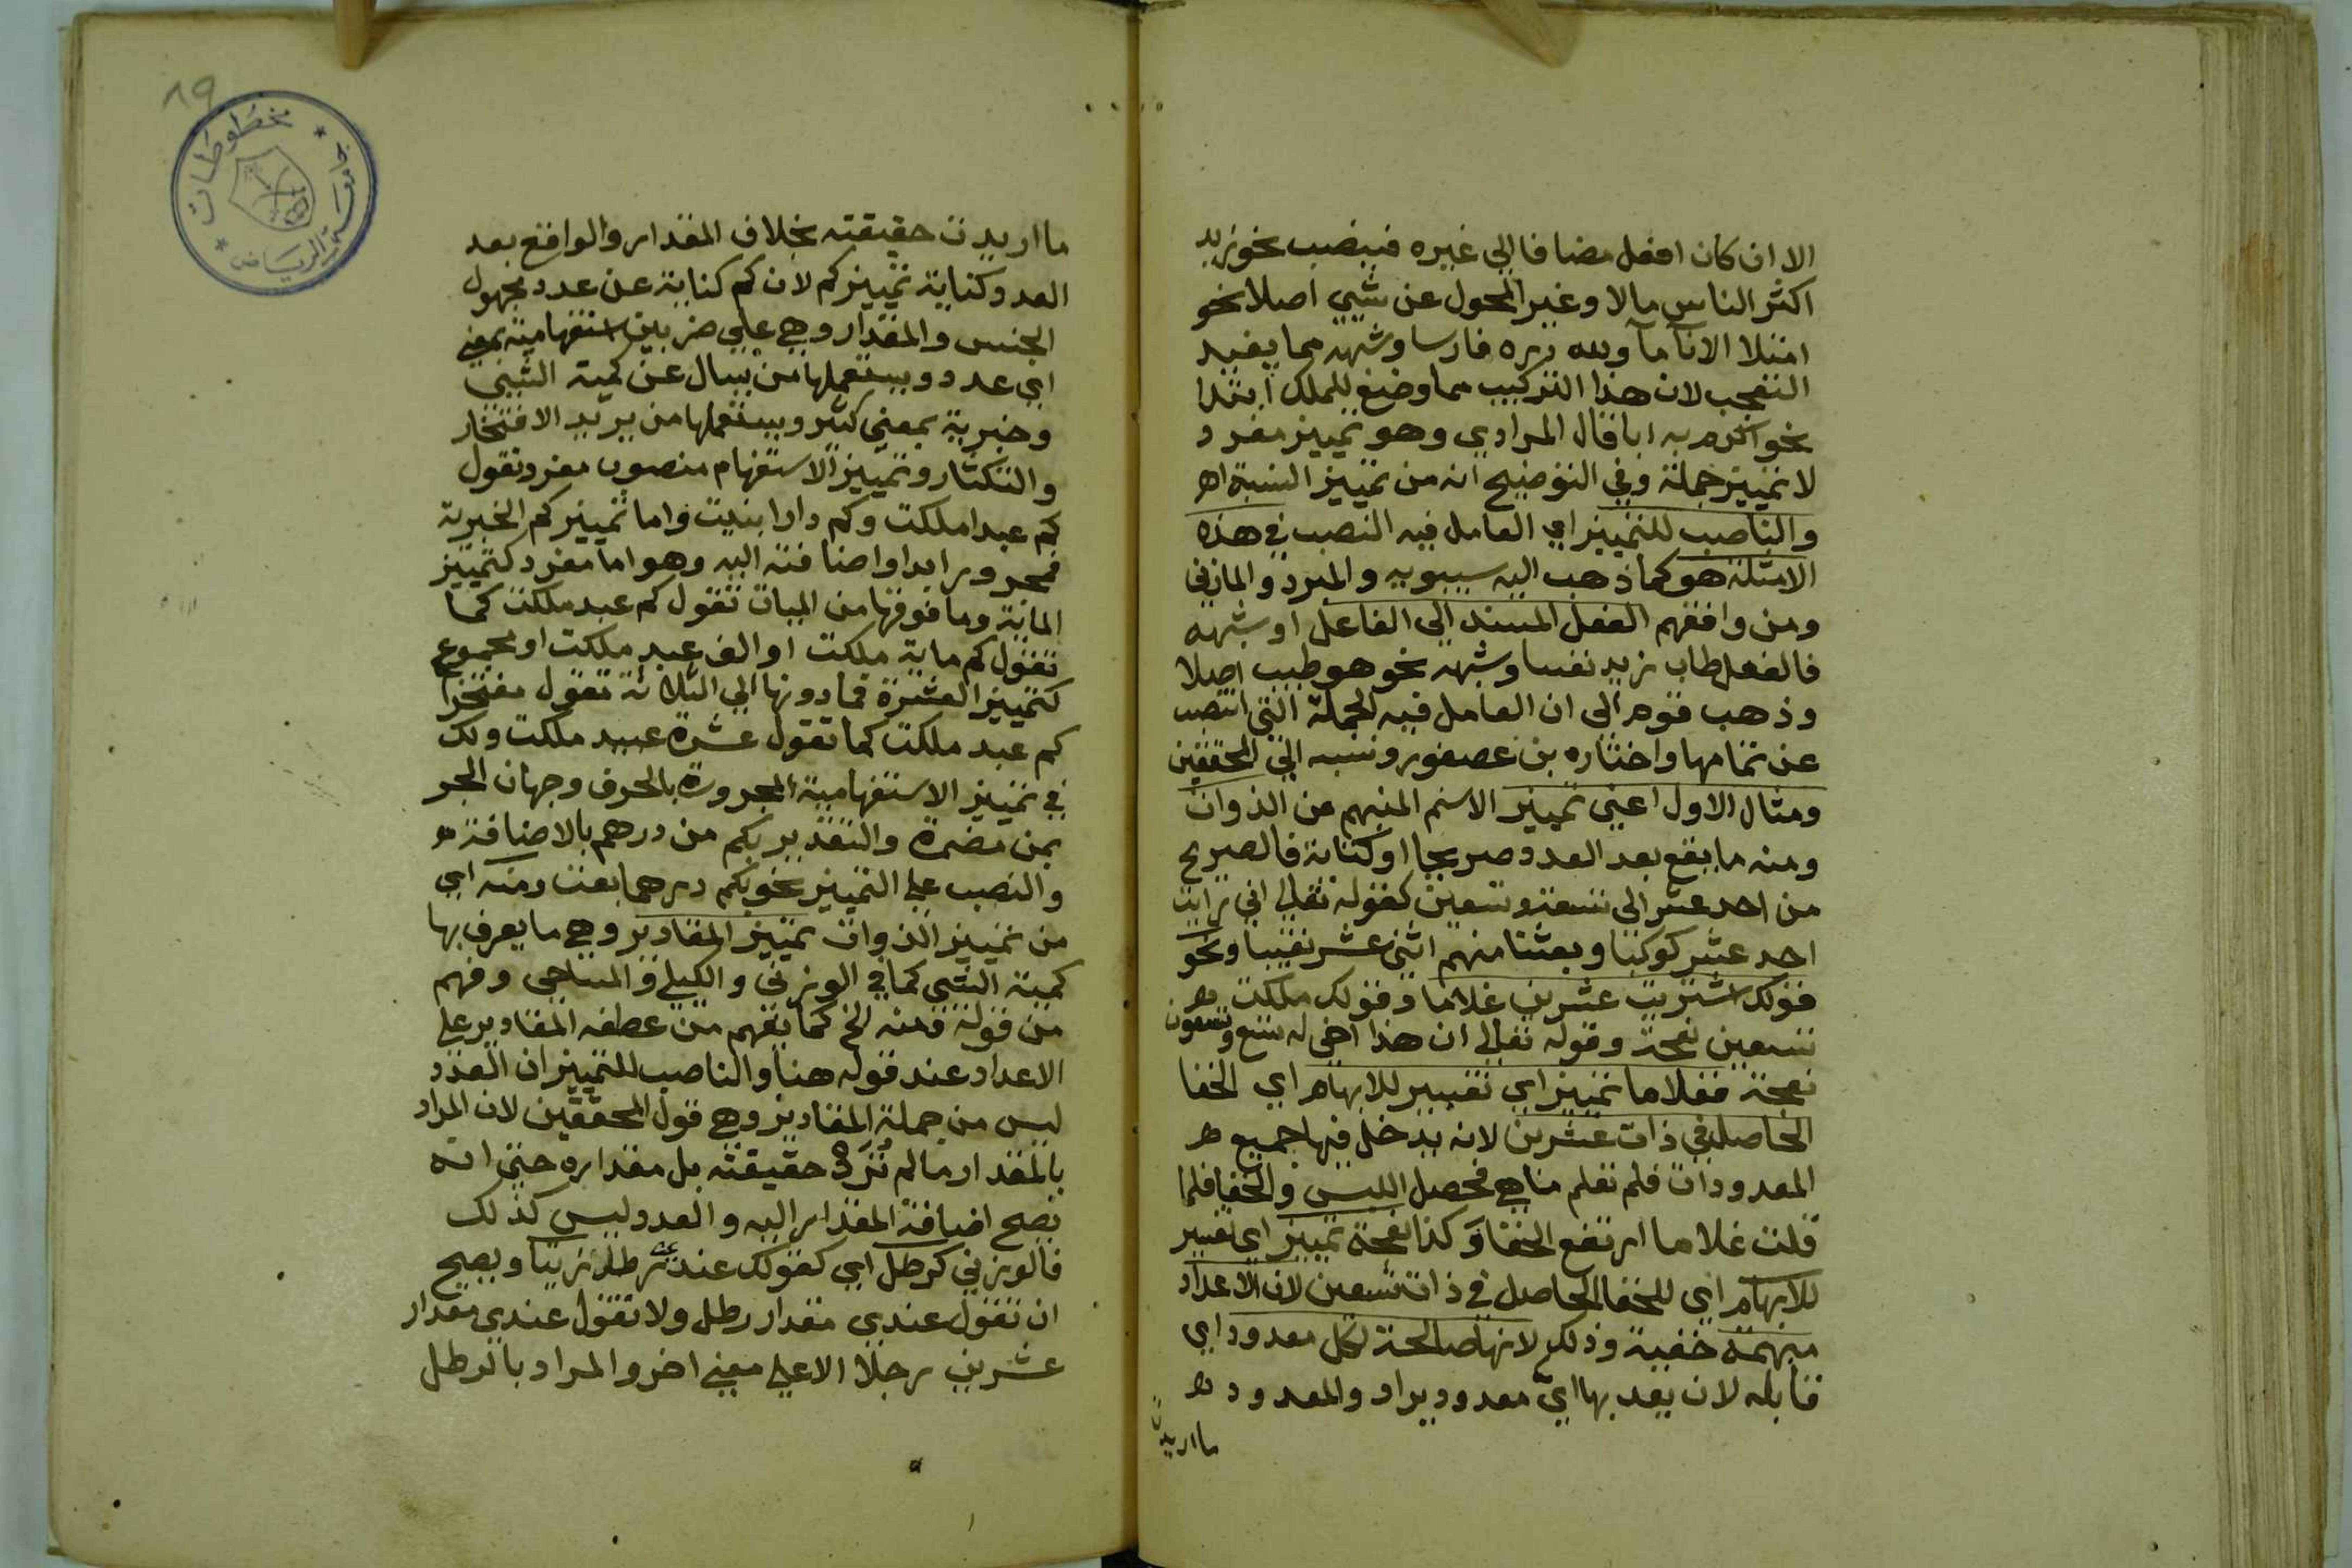 الا ان كان افعل مضافا الي غيره فينصب نحو زيد
اكثر الناس مالا وغير المحول عن شيي اصلا نحو
امتلا الانآ مآ ولله دره فارسا وشبهه مما يفيد
التعجب لان هذا التركيب مما وضع للملك ابتدا
نحو اكرم به ابا قال المرادي وهو تمييز مفرد
لا تمييز جملة وفي التوضيح انه من تمييز النسبة اهـ
والناصب للتمييز اي العامل فيه النصب في هذه
الامثلة هو كما ذهب اليه سيبويه والمبرد والمازني
ومن وافقهم الفعل المسند الي الفاعل او شبهه
فالفعل طاب زيد نفسا وشبهه نحو هو طيب اصلا
وذهب قوم الي ان العامل فيه الجملة التي انتصب
عن تمامها واختاره بن عصفور ونسبه الي المحققين
ومثال الاول اعني تمييز الاسم المبهم من الذوات
ومنه ما يقع بعد العدد صريحا او كناية فالصريح
من احد عشر الي تسعة وتسعين كقوله تعالي اني رايت
احد عشر كوكبا وبعثنا منهم اثني عشر نقيبا ونحو
قولك اشتريت عشرين غلاما وقولك ملكت
تسعين نعجة وقوله تعالي ان هذا اخي له تسع وتسعون
نعجة فغلاما تمييز اي تفسير للابهام اي الخفا
الحاصل في ذات عشرين لانه يدخل فيها جميع
المعدودات فلم تعلم ما هي فحصل اللبس والخفا فلما
قلت غلاما ارتفع الخفا وكذا نعجة تمييز اي تفسير
للابهام اي للخفا الحاصل في ذات تسعين لان الاعداد
مبهمة خفية وذلك لانها صالحة لكل معدود اي
قابله لان يعد بها اي معدود يراد والمعدود
ما اريدت
١٩
مخطوطات
جامعة الرياض
ما اريدت حقيقته بخلاف المقدار والواقع بعد
العدد كناية تمييز كم لان كم كناية عن عدد مجهول
الجنس والمقدار وهي علي ضربين استفهامية بمعني
اي عدد ويستعملها من يسال عن كمية الشيي
وخبرية بمعني كثير ويستعملها من يريد الافتخار
والتكثار وتمييز الاستفهام منصوب مفرد تقول
كم عبدا ملكت وكم دارا بنيت واما تمييز كم الخبرية
فمجرور ابدا واضافته اليه وهو اما مفرد كتمييز
الماية وما فوقها من الميات تقول كم عبد ملكت كما
تقول كم ماية ملكت او الف عبد ملكت او مجموع
كتمييز العشرة فما دونها الي الثلاثة تقول مفتخرا
كم عبيد ملكت كما تقول عشرة عبيد ملكت ولك
في تمييز الاستفهامية المجرورة بالحرف وجهان الجر
بمن مضمرة والتقدير بكم من درهم بالاضافة
والنصب علي التمييز نحو بكم درهما بعت ومنه اي
من تمييز الذوات تمييز المقادير وهي ما يعرف بها
كمية الشيي كما في الوزني والكيلي والمساحي وفهم
من قوله ومنه الخ كما يفهم من عطفه المقادير علي
الاعداد عند قوله هنا والناصب للتمييز ان العدد
ليس من جملة المقادير وهي قول المحققين لان المراد
بالمقدار ما لم ترد حقيقته بل مقداره حتي انه
تصح اضافة المقدار اليه والعدد ليس كذلك
فالوزني كرطل اي كقولك عندي رطل زيتا ويصح
ان تقول عندي مقدار رطل ولا تقول عندي مقدار
عشرين رجلا الا علي معني اخر والمراد بالرطل